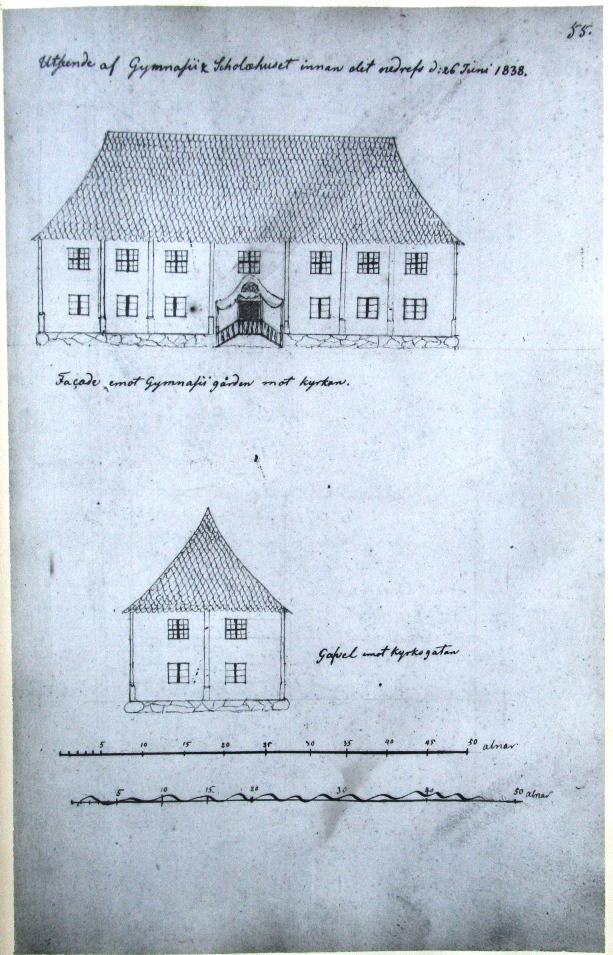 55.
Utseende af Gymnasii & Scholæhuset innan det nedrefs d: 26 Juni 1838.
Façade emot Gymnasii gården mot kyrkan.
Gafvel emot kyrkogatan
5 10 15 20 25 30 35 40 45 50 alnar
5 10 15 20 30 40 50 alnar